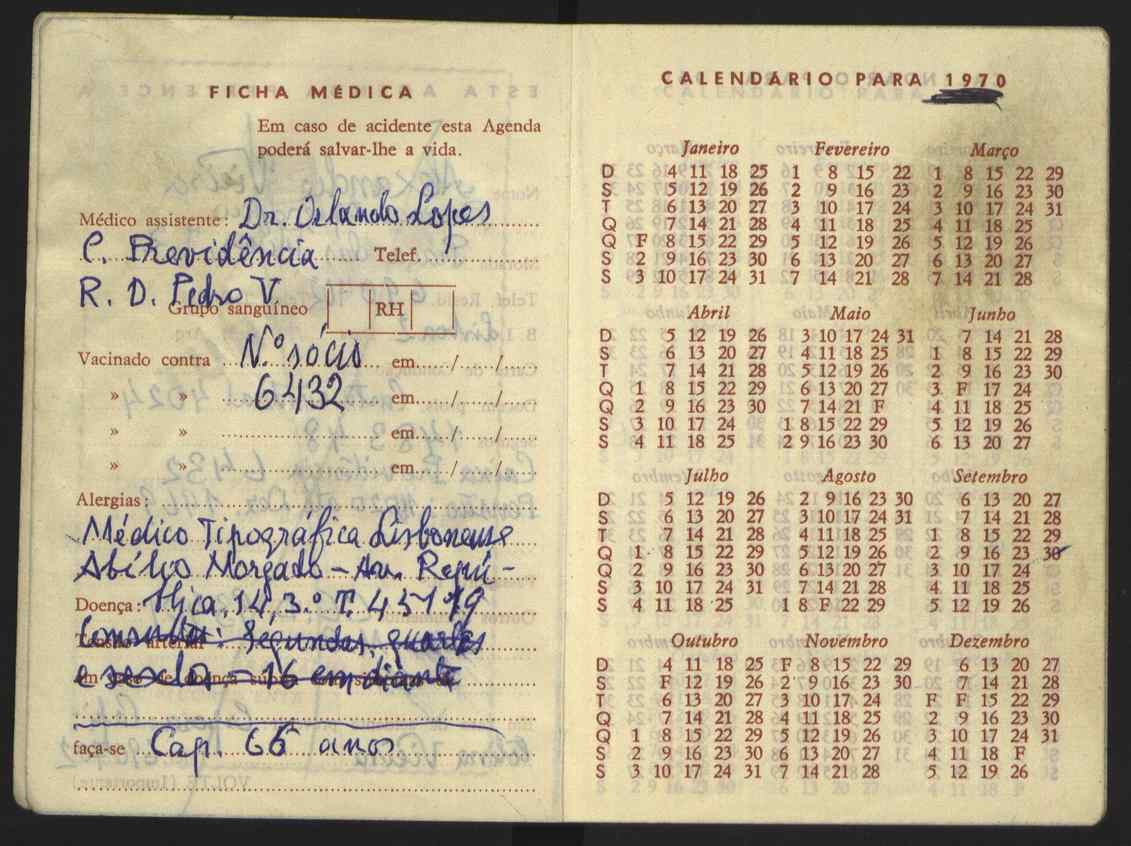 FICHA MÉDICA
Em caso de acidente esta Agenda
poderá salvar-lhe a vida.
Médico assistente: Dr. Orlando Lopes
C. Previdência Telef.
R. D. Pedro V.
Grupo sanguíneo RH
Vacinado contra N.º sócio em / /
» » 6432 em / /
» » em / /
» » em / /
Alergias:
Médico Tipográfica Lisbonense
Abílio Morgado - Av. Repú-
Doença: blica, 14, 3.º T. 45 1919
Consultas: Segundas, quartas
Tensão arterial
e sextas - 16 em diante
faça-se Cap. 66 anos
CALENDÁRIO PARA 1970
Janeiro Fevereiro Março
D 4 11 18 25 1 8 15 22 1 8 15 22 29
S 5 12 19 26 2 9 16 23 2 9 16 23 30
T 6 13 20 27 3 10 17 24 3 10 17 24 31
Q 7 14 21 28 4 11 18 25 4 11 18 25
Q F 8 15 22 29 5 12 19 26 5 12 19 26
S 2 9 16 23 30 6 13 20 27 6 13 20 27
S 3 10 17 24 31 7 14 21 28 7 14 21 28
Abril Maio Junho
D 5 12 19 26 3 10 17 24 31 7 14 21 28
S 6 13 20 27 4 11 18 25 1 8 15 22 29
T 7 14 21 28 5 12 19 26 2 9 16 23 30
Q 1 8 15 22 29 6 13 20 27 3 F 17 24
Q 2 9 16 23 30 7 14 21 F 4 11 18 25
S 3 10 17 24 1 8 15 22 29 5 12 19 26
S 4 11 18 25 2 9 16 23 30 6 13 20 27
Julho Agosto Setembro
D 5 12 19 26 2 9 16 23 30 6 13 20 27
S 6 13 20 27 3 10 17 24 31 7 14 21 28
T 7 14 21 28 4 11 18 25 1 8 15 22 29
Q 1 8 15 22 29 5 12 19 26 2 9 16 23 30
Q 2 9 16 23 30 6 13 20 27 3 10 17 24
S 3 10 17 24 31 7 14 21 28 4 11 18 25
S 4 11 18 25 1 8 F 22 29 5 12 19 26
Outubro Novembro Dezembro
D 4 11 18 25 F 8 15 22 29 6 13 20 27
S F 12 19 26 2 9 16 23 30 7 14 21 28
T 6 13 20 27 3 10 17 24 F F 15 22 29
Q 7 14 21 28 4 11 18 25 2 9 16 23 30
Q 1 8 15 22 29 5 12 19 26 3 10 17 24 31
S 2 9 16 23 30 6 13 20 27 4 11 18 F
S 3 10 17 24 31 7 14 21 28 5 12 19 26